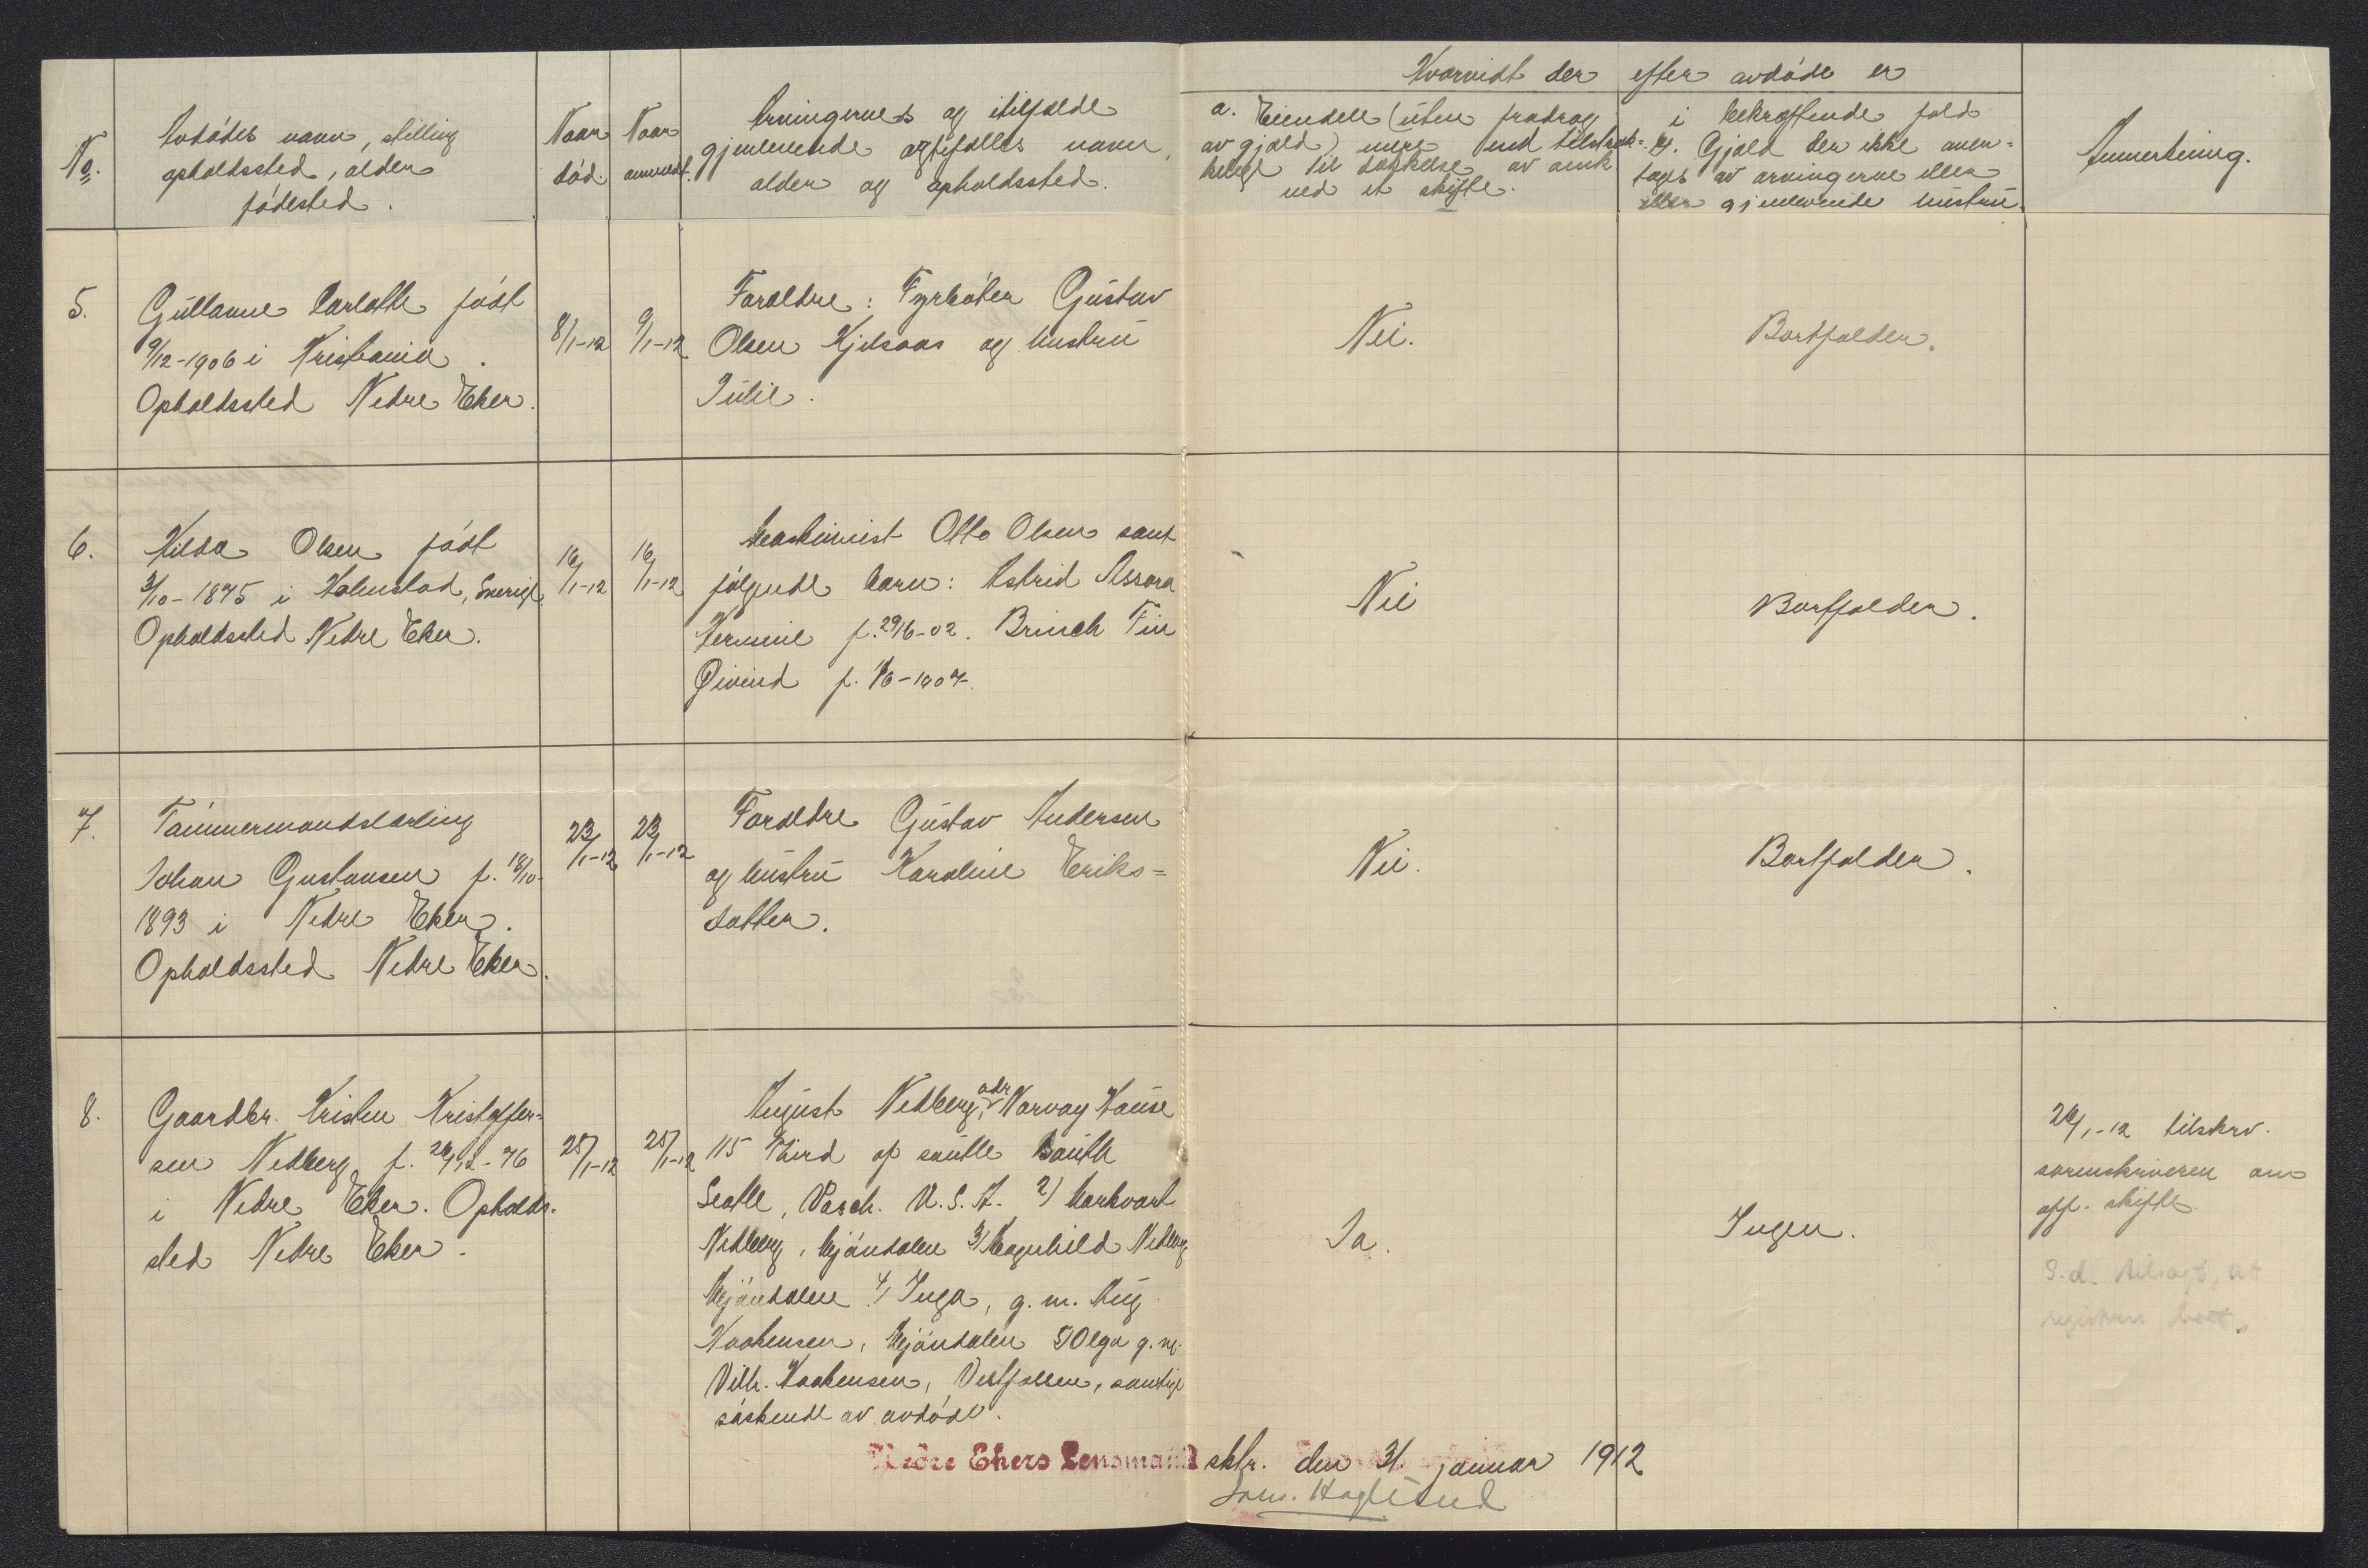 Hvorvidt der efter avdøde er
No.
Avdødes navn, stilling
opholdssted, alder
fødested.
Naar
død.
Naar
anmeldt.
Arvingernes og itilfælde
gjenlevende ægtefælles navn,
alder og opholdssted.
a. Eiendele (uten fradrag
av gjæld) mere end tilstræk-
keligt til dækkelse av omk.
ved et skifte.
i bekræftende fald
b. Gjæld der ikke over-
tages av arvingerne eller
eller gjenlevende hustru.
Anmerkning.
5.
Gullanne Carlotte født
9/12-1906 i Kristiania.
Opholdssted Nedre Eker.
8/1-12
9/1-12
Forældre: Fyrbøter Gustav
Olsen Kjelsaas og hustru
Julie.
Nei.
Bortfalder.
6.
Hilda Olsen født
3/10-1875 i Halmstad, Sverige.
Opholdssted Nedre Eker.
16/1-12
16/1-12
Maskinist Otto Olsen samt
følgende barn: Astrid Assora
Hermine f. 29/6-02. Brinch Fin
Øivind f. 1/6-1907.
Nei
Bortfalder.
7.
Tømmermandslærling
Johan Gustavsen f. 18/10-
1893 i Nedre Eker.
Opholdssted Nedre Eker.
23/1-12
23/1-12
Forældre Gustav Andersen
og hustru Karoline Eriks=
datter.
Nei.
Bortfalder.
8.
Gaardbr. Kristen Kristoffer=
sen Nedberg f. 24/12-76
i Nedre Eker. Opholds-
sted Nedre Eker.
25/1-12
25/1-12
August Nedberg, adr. Norvay House
115 Third op southe South
Seatle, Vasch. U.S.A. 2) Markvart
Nedberg, Mjøndalen 3) Magnhild Nedberg
Mjøndalen 4) Inga, g. m. Aug.
Haakensen, Mjøndalen 5) Olga g. m.
Vilh. Haakensen, Vestfossen, samtlige
søskende av avdøde.
Ja.
Ingen.
26/1-12 tilskrv.
sorenskriveren om
off. skifte.
S.d. tilsagt, at
registrere boet.
Nedre Ekers Lensmand sktr. den 31 januar 1912
Haglund